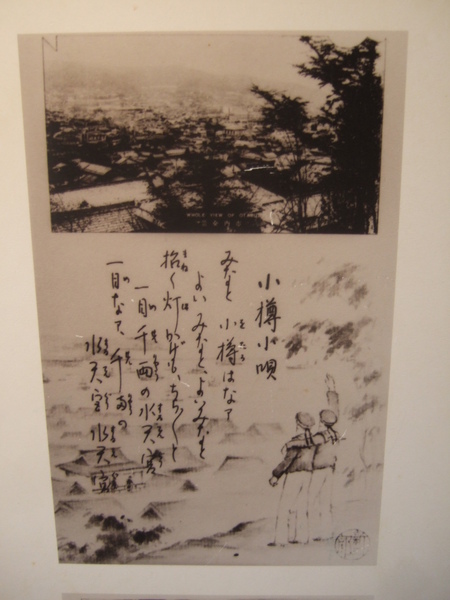 WHOLE VIEW OF
小樽小唄
みなと 小樽はなア
よい みなと よいみなと
招く 灯かげも ちらちらと
一目千両の水天宮
一目なア 千両の
水天宮 水天宮